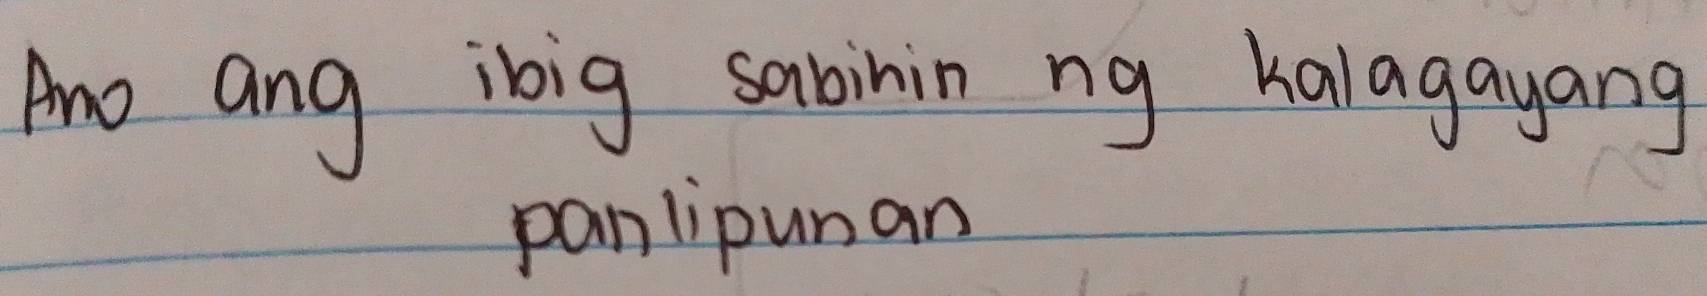 Ano ang ibig sabihin ng kalagayang
panlipunan